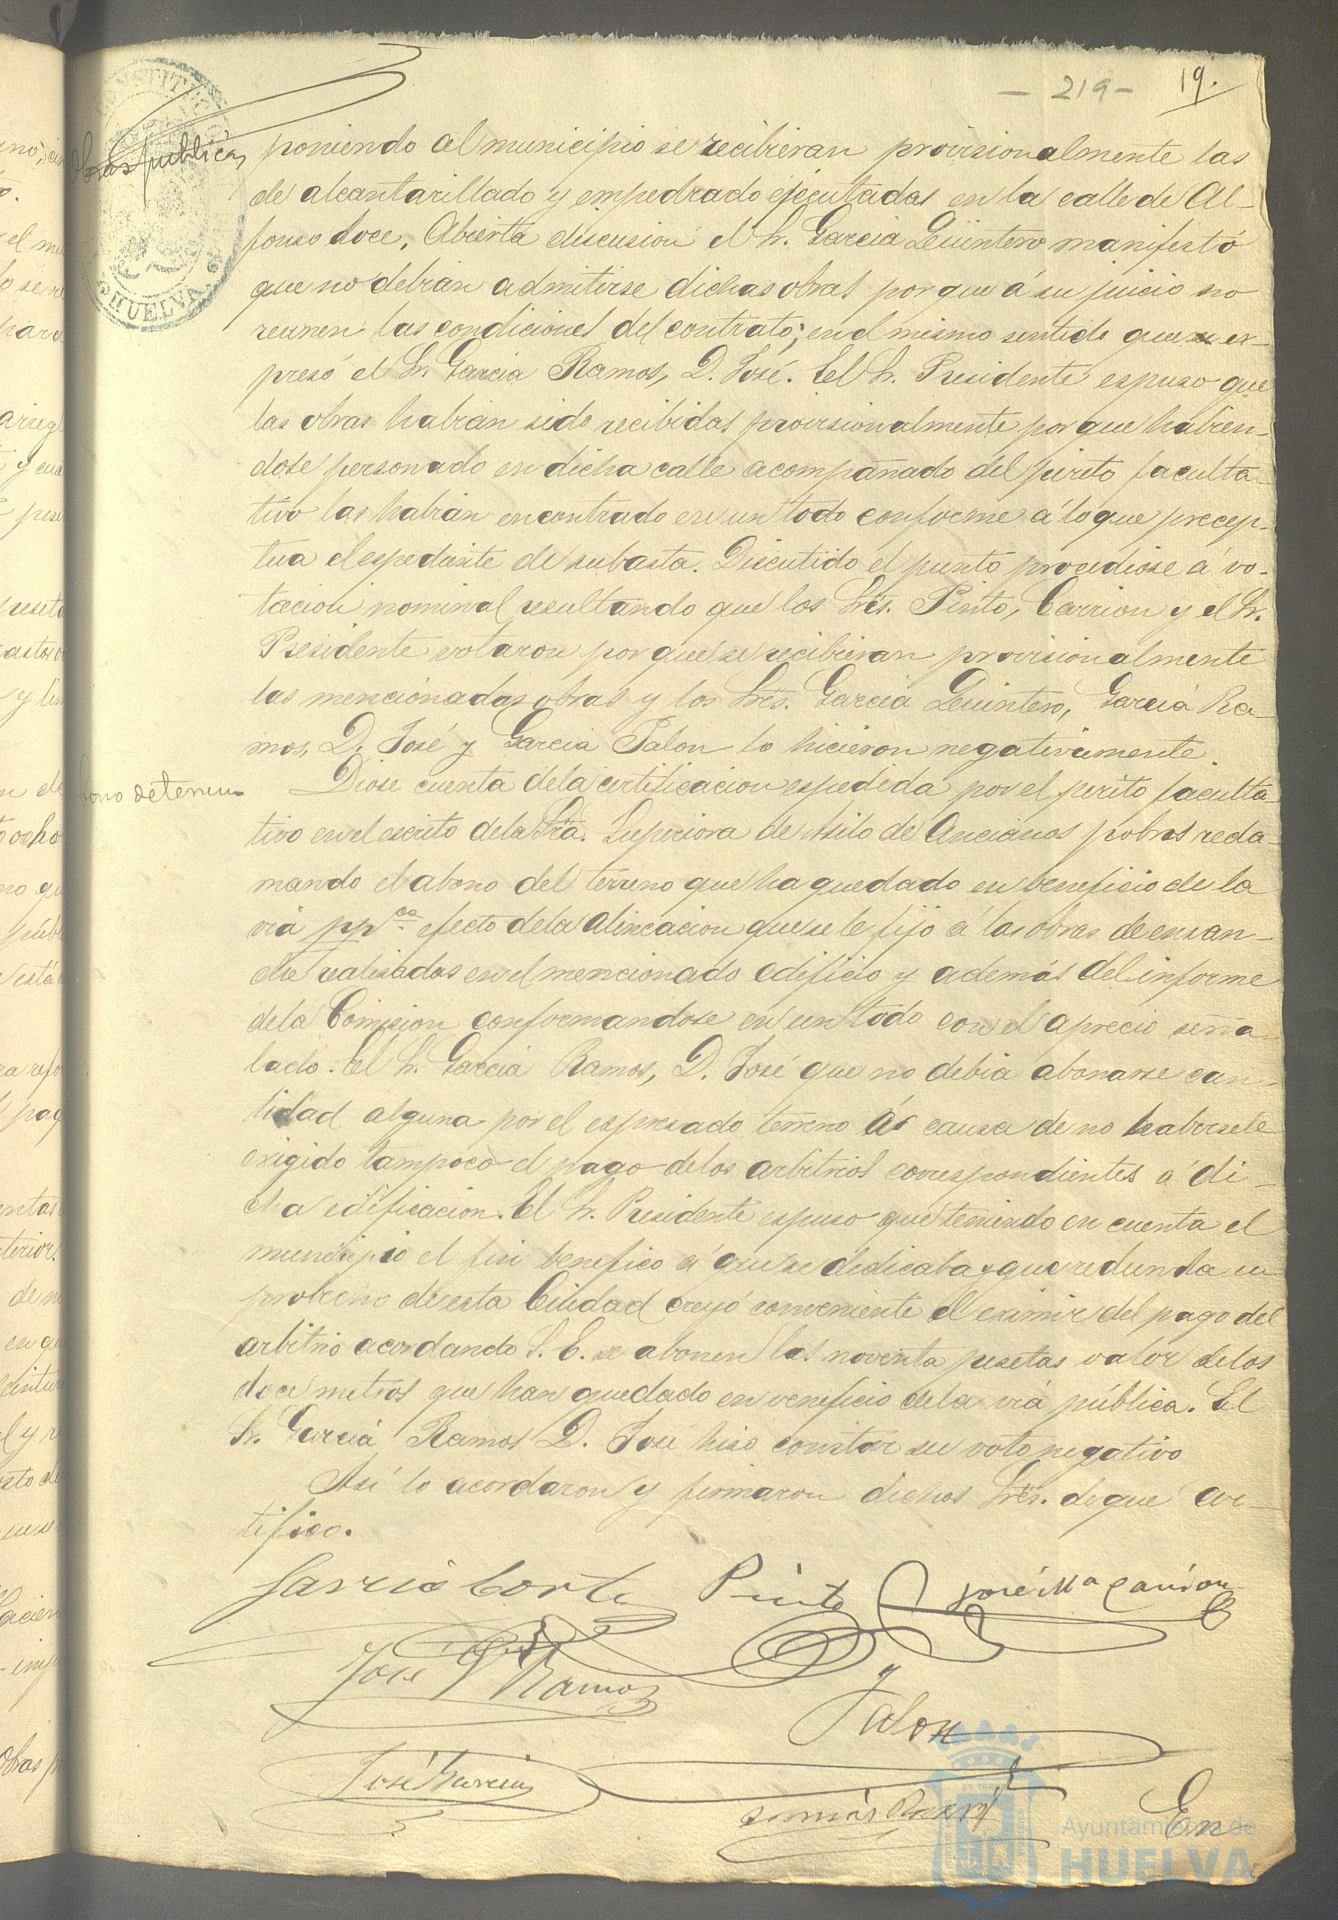 - 219 - 19.
Obras publicas
poniendo al municipio se recibieran provisionalmente las
de alcantarillado y empedrado ejecutadas en la calle de Al-
fonso doce. Abierta discusion el Sr. Garcia Quintero manifestó
que no debian admitirse dichas obras porque á su juicio no
reunen las condiciones del contrato; en el mismo sentido que se ex-
presó el Sr. Garcia Ramos, D. José. El Sr. Presidente espuso que
las obras habian sido recibidas provisionalmente porque habien-
dose personado en dicha calle acompañado del perito faculta-
tivo las habian encontrado en un todo conforme á lo que precep-
tua el espediente de subasta. Discutido el punto procediose á vo-
tacion nominal resultando que los Sres. Pinto, Carrion y el Sr.
Presidente votaron porque se recibieran provisionalmente
las mencionadas obras y los Sres. Garcia Quintero, Garcia Ra-
mos, D. José y Garcia Jalon lo hicieron negativamente.
abono de terreno
Diose cuenta de la certificacion espedida por el perito faculta-
tivo en el escrito de la Sra. Superiora de Asilo de Ancianos pobres recla-
mando el abono del terreno que ha quedado en beneficio de la
via ppca. efecto de la alineacion que se le fijo á las obras de ensan-
che realizadas en el mencionado edificio y además del informe
de la Comision conformandose en un todo con el aprecio seña-
lado. El Sr. Garcia Ramos, D. José que no debia abonarse can-
tidad alguna por el espresado terreno á causa de no habersele
exigido tampoco el pago de los arbitrios correspondientes á di-
cha edificacion. El Sr. Presidente espuso que teniendo en cuenta el
municipio el fin benefico á que se dedicaba y que redunda en
probecho de esta Ciudad creyó conveniente el eximir del pago del
arbitrio acordando S. E. se abonen las noventa pesetas valor de los
doce metros que han quedado en veneficio de la via pública. El
Sr. Garcia Ramos D. José hiso constar su voto negativo
Asi lo acordaron y firmaron dichos Sres. de que cer-
tifico.
Garcia Corte Pinto José Ma Carrion
José G Ramos
Jalon
José Garcia
En
Ayuntamiento de
HUELVA